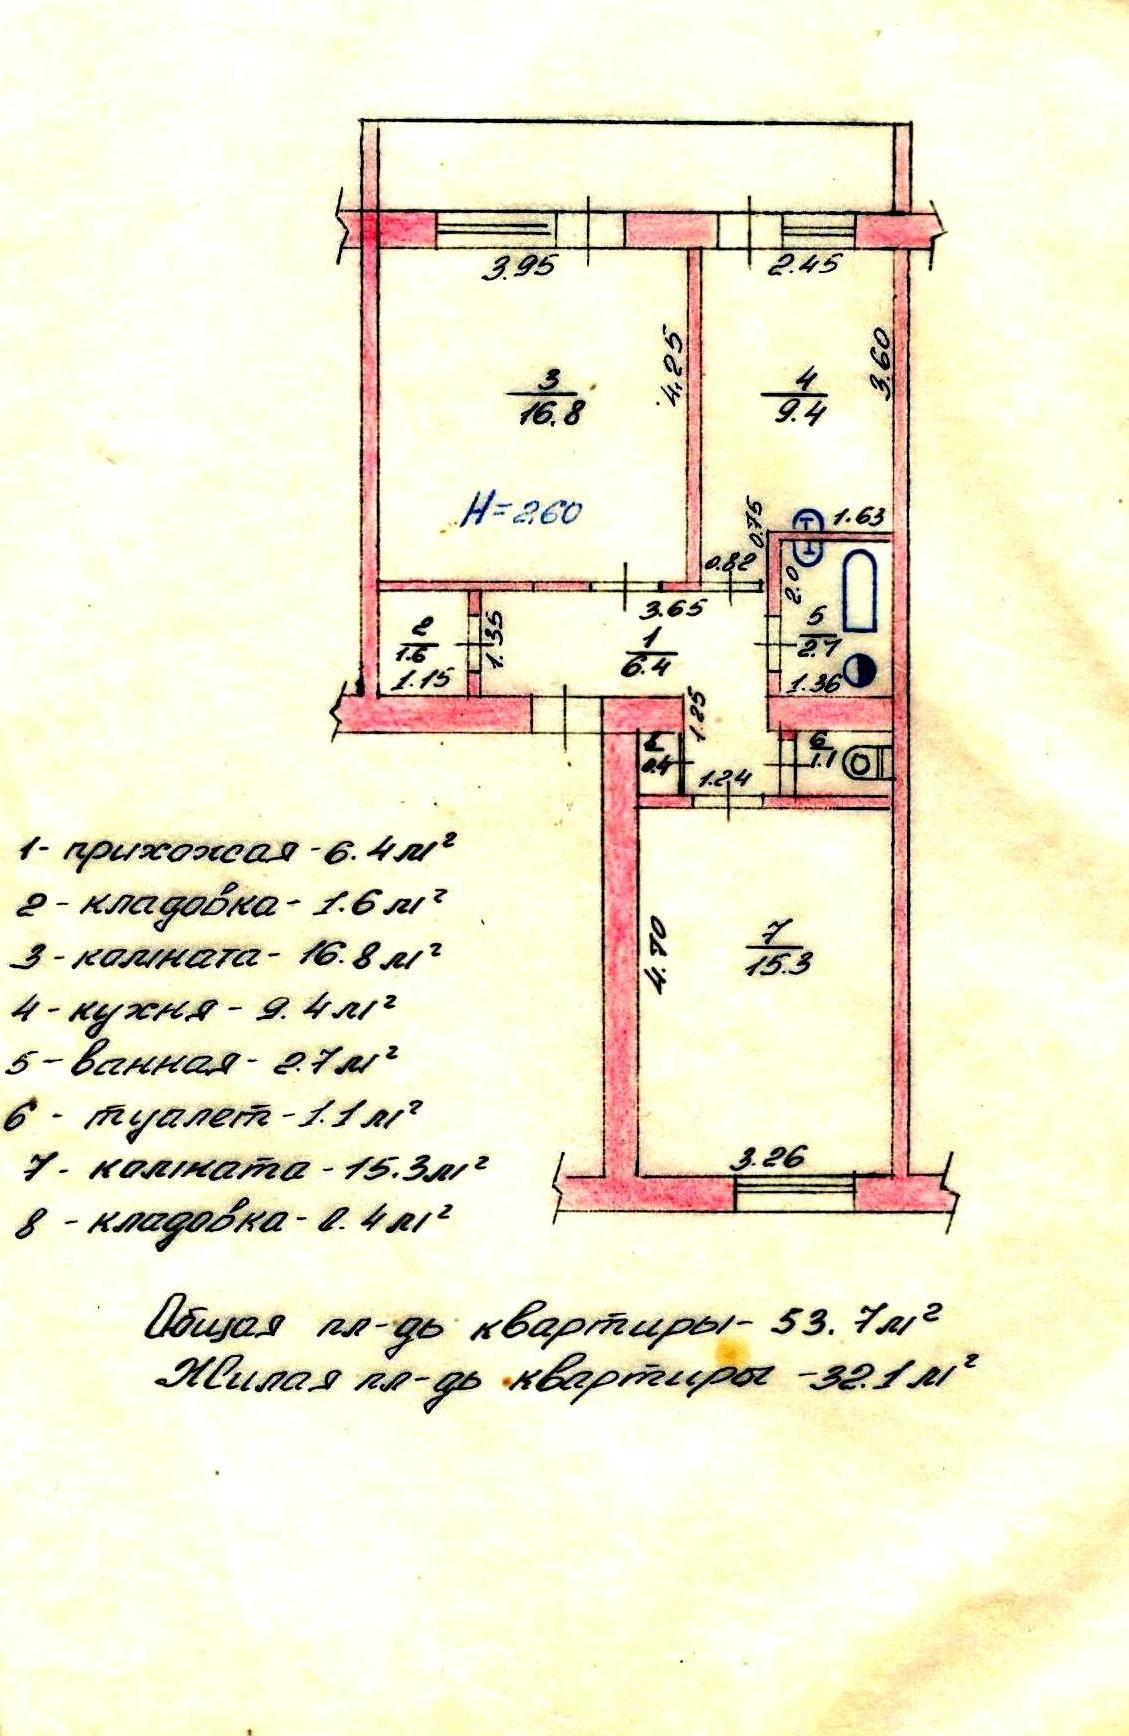 3.95
2.45
4.25
3.60
3
16.8
4
9.4
H=2.60
0.75
1.63
0.82
2.0
3.65
1.35
2
1.6
1.15
1
6.4
5
2.7
1.36
1.25
8
0.4
6
1.1
1.24
4.70
7
15.3
3.26
1- прихожая - 6.4 м²
2 - кладовка - 1.6 м²
3 - комната - 16.8 м²
4 - кухня - 9.4 м²
5 - ванная - 2.7 м²
6 - туалет - 1.1 м²
7 - комната - 15.3 м²
8 - кладовка - 0.4 м²
Общая пл-дь квартиры - 53.7 м²
Жилая пл-дь квартиры - 32.1 м²